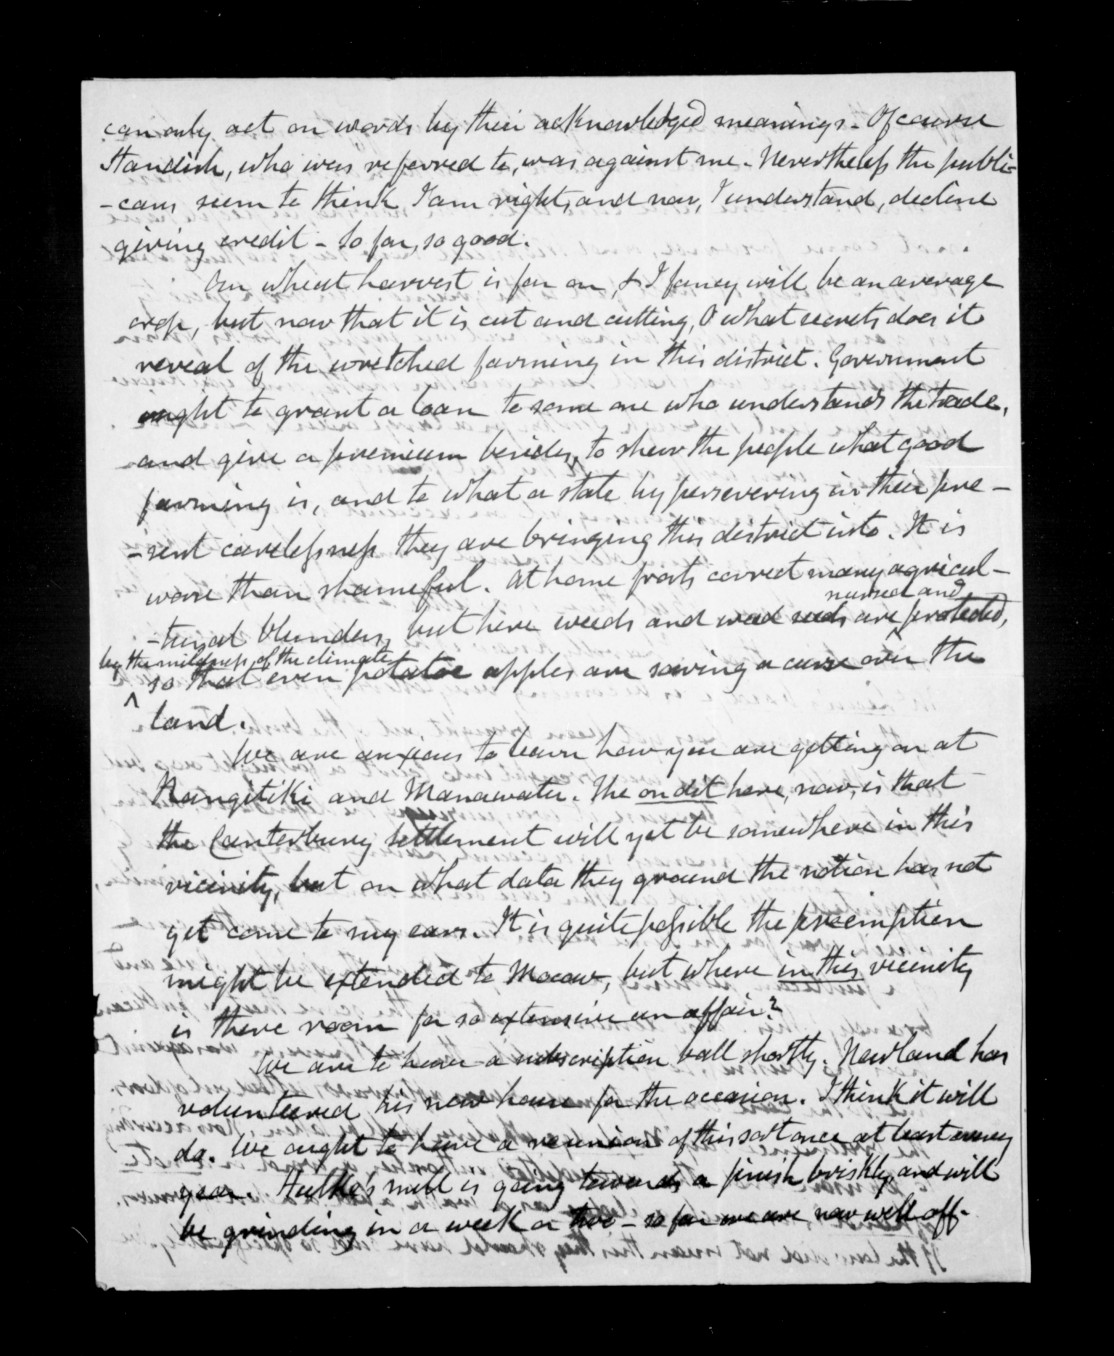 can only act on words by their acknowledged meanings - Of course
Standish, who was referred to, was against me. Nevertheless the publi-
-cans seem to think I am right, and now, I understand, decline
giving credit - So far, so good.
Our wheat harvest is far on, & I fancy will be an average
crop, but now that it is cut and cutting, O what secrets does it
reveal of the wretched farming in this district. Government
ought to grant a loan to some one who understands the trade,
and give a premium besides, to shew the people what good
farming is, and to what a state by persevering in their pre-
-sent carelessness they are bringing this district into. It is
worse than shameful. At home frosts correct many agricul-
nursed and
-tural blunders, but here weeds and weed seeds are ^ protected,
by the mildness of the climate
^ so that even potatoe apples are sowing a curse over the
land.
We are anxious to learn how you are getting on at
Rangitiki and Manawatu. The on dit here, now, is that
the Canterbury settlement will yet be somewhere in this
vicinity, but on what data they ground the notion has not
yet come to my ears. It is quite possible the preemption
might be extended to Mocau, but where in this vicinity
is there room for so extensive an affair?
We are to have a subscription ball shortly. Newland has
volunteered his new house for the occasion. I think it will
do. We ought to have a reunion of this sort once at least every
year. Hulke's mill is going towards a finish briskly, and will
be grinding in a week or two - so far we are now well off.